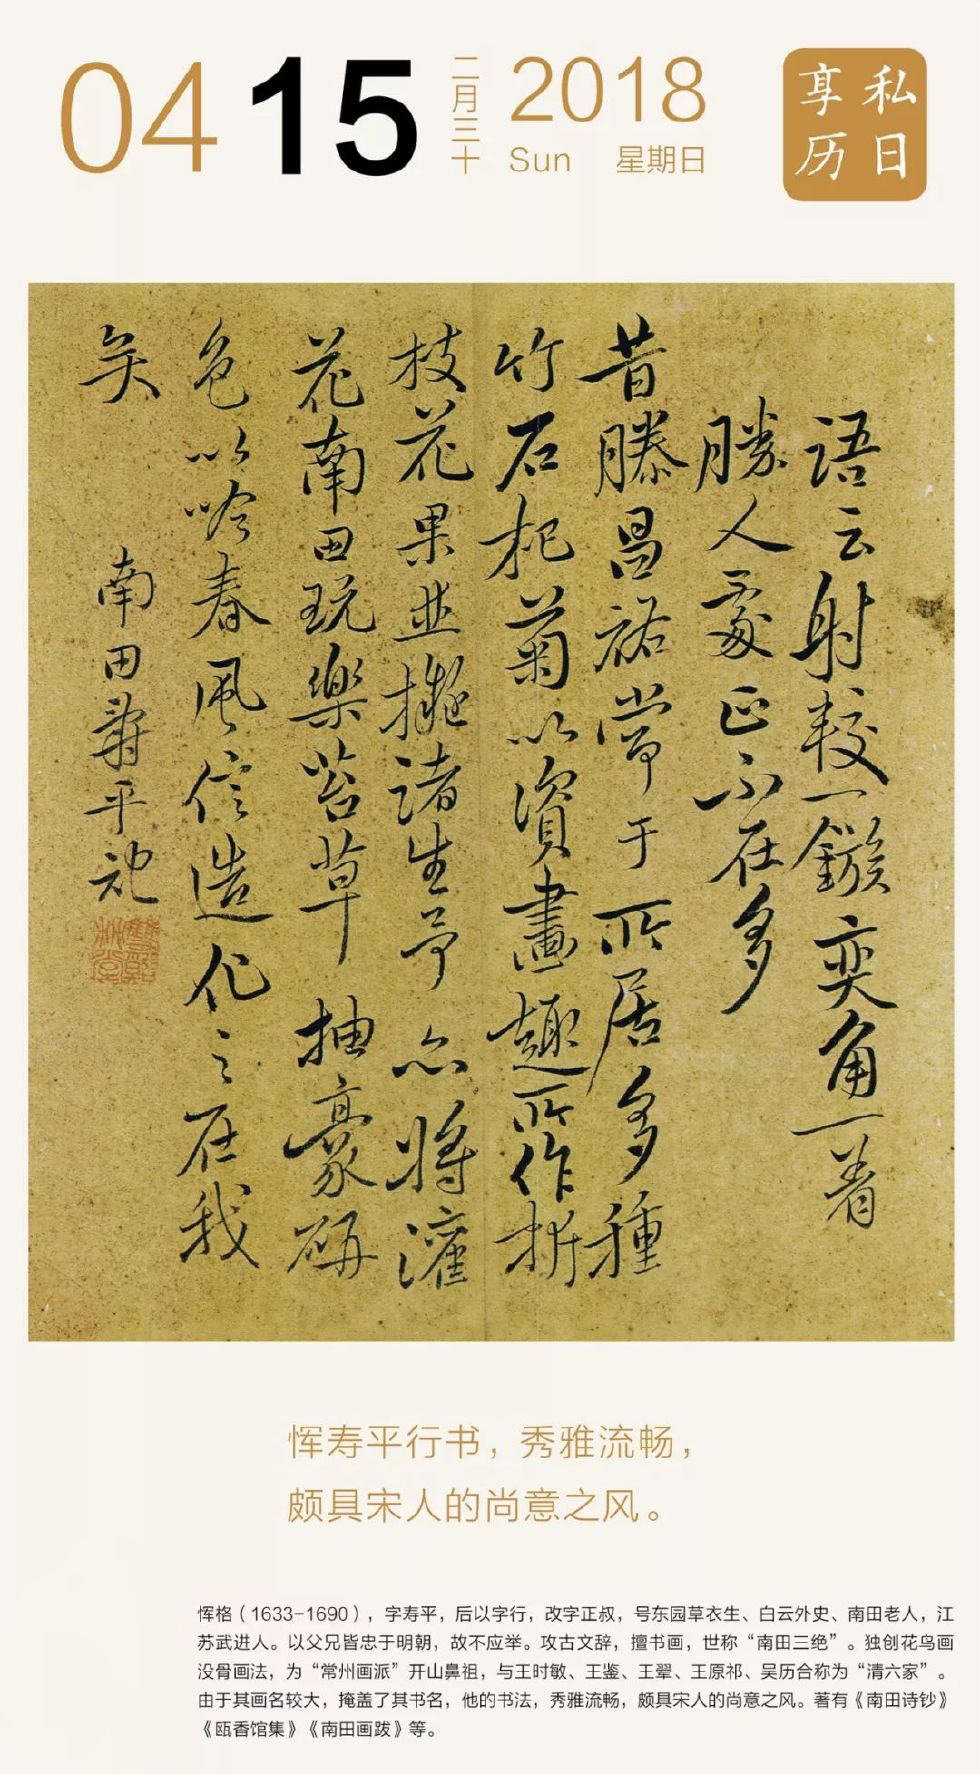 04 15
二月三十
2018
Sun 星期日
私日
享历
語云射較一鏃奕角一着
勝人處正不在多
昔滕昌祐常于所居多種
竹石杞菊以資畫趣所作折
枝花果並擬諸生予亦將灌
花南田玩樂苔草抽豪研
色以吟春風信造化之在我
矣
南田壽平記
恽寿平行书，秀雅流畅，
颇具宋人的尚意之风。
恽格（1633-1690），字寿平，后以字行，改字正叔，号东园草衣生、白云外史、南田老人，江
苏武进人。以父兄皆忠于明朝，故不应举。攻古文辞，擅书画，世称“南田三绝”。独创花鸟画
没骨画法，为“常州画派”开山鼻祖，与王时敏、王鉴、王翚、王原祁、吴历合称为“清六家”。
由于其画名较大，掩盖了其书名，他的书法，秀雅流畅，颇具宋人的尚意之风。著有《南田诗钞》
《瓯香馆集》《南田画跋》等。